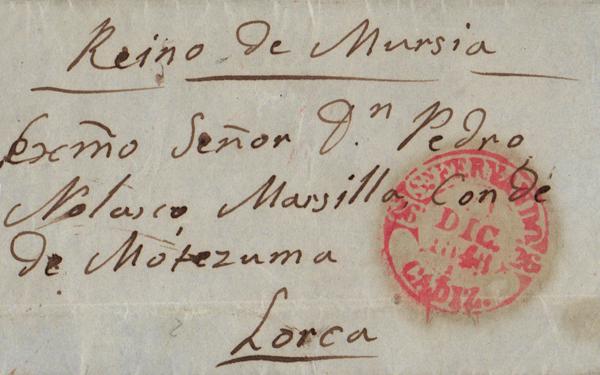 Reino de Mursia
Exmo Señor Dn Pedro
Nolasco Marsilla Conde
de Motezuma
Lorca
Sn FERNANDO
DIC.
CADIZ.